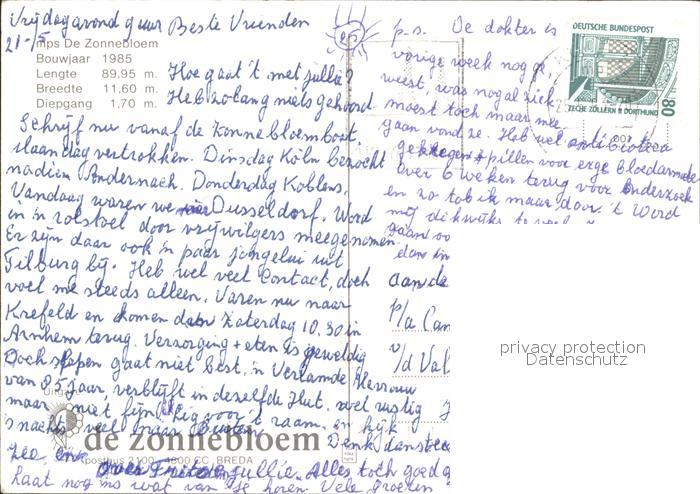 Vrijdagavond 9 uur Beste Vrienden
21-5
mps De Zonnebloem
Bouwjaar 1985
Lengte 89,95 m.
Breedte 11,60 m.
Diepgang 1,70 m.
Hoe gaat 't met jullie?
Heb zolang niets gehoord
Schrijf nu vanaf de Zonnebloemboot,
maandag vertrokken. Dinsdag Köln bezocht
nadien Andernach. Donderdag Koblens,
Vandaag waren we Dusseldorf. Word
in 'n rolstoel door vrijwilgers meegenomen
Er zijn daar ook 'n paar jongelui uit
Tilburg bij. Heb wel veel contact, doch
voel me steeds alleen. Varen nu naar
Krefeld en komen dan Zaterdag 10.30 in
Arnhem terug. Verzorging + eten is geweldig
Doch slapen gaat niet best. 'n Verlamde Mevrouw
van 85 jaar, verblijft in dezelfde Hut. wel rustig
maar niet fijn. Lig voor 't raam en kijk
's nachts veel naar Buiten. Denk dan steeds
de zonnebloem
postbus 2100 - 4800 CC BREDA
jullie. Alles toch goed
Laat nog ins wat van je horen. Vele groeten
p.s. De dokter is
vorige week nog ge-
weest, was nogal ziek
moest toch maar mee
gaan vond ze. Heb wel antibiotica
gekregen + pillen voor erge bloedarmoede
over 6 weken terug voor onderzoek
en zo tob ik maar door. 't Word
mij dikwijls te veel
aan de
P/a
v/d Val
DEUTSCHE BUNDESPOST
80
ZECHE ZOLLERN II DORTMUND
privacy protection
Datenschutz